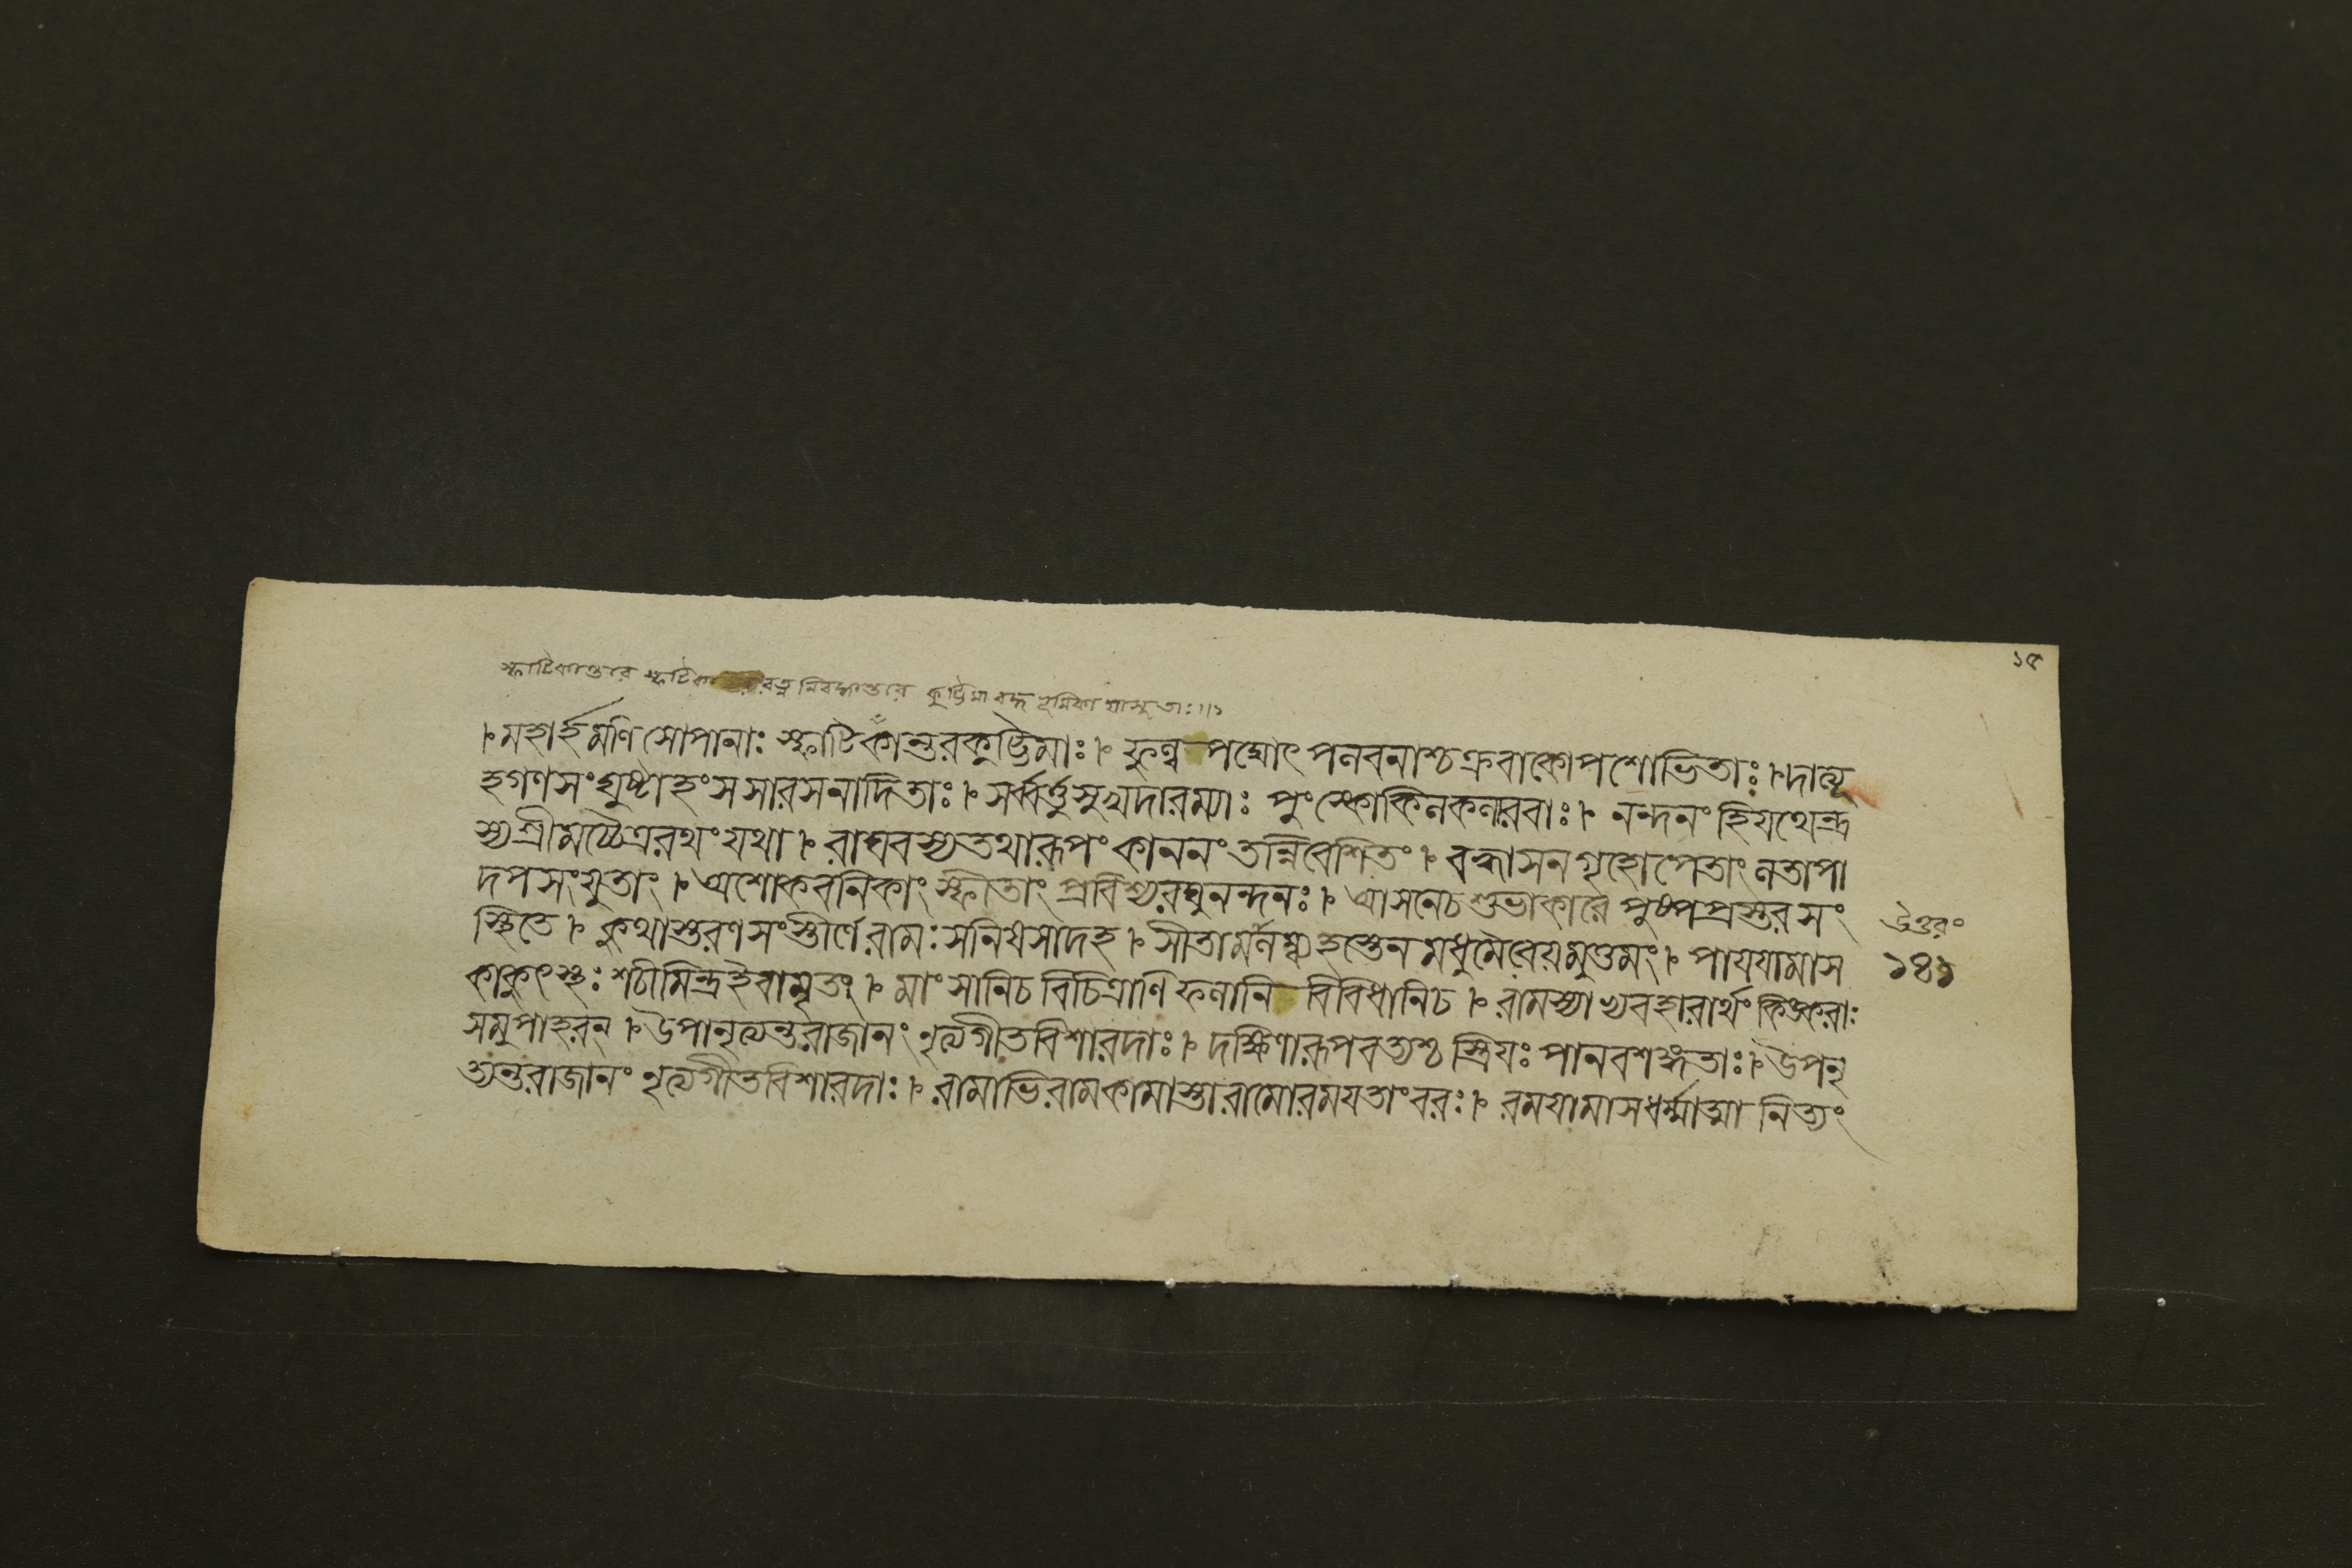 ১৫
স্ফাটিকান্তরে স্ফটিকা রত্ন নিবদ্ধান্তরে কুট্টিমা বদ্ধ ভূমিকা যাসু তাঃ॥১
। মহার্হমণিসোপানাঃ স্ফাটিকান্তরকুট্টিমাঃ । ফুল্ল পদ্মোৎপলবনাশ্চক্রবাকোপশোভিতাঃ । দাত্যূ
হগণসংঘুষ্টাহংসসারসনাদিতাঃ । সর্ব্বর্ত্তুসুখদারম্যাঃ পুংস্কোকিলকলারবাঃ । নন্দনং হিযথেন্দ্র
স্যশ্রীমচ্চৈত্ররথং যথা । রাঘবস্যতথারূপং কাননং তন্নিবেশিতং । বহ্বাসনগৃহোপেতাং লতাপা
দপসংযুতাং । অশোকবনিকাং স্ফীতাং প্রবিশ্যরঘুনন্দনঃ । আসনেচশুভাকারে পুষ্পপ্রস্তরসং
স্থিতে । কুথাস্তরণসংস্তীর্ণে রামঃ সনিষসাদহ । সীতামলম্ব্যহস্তেন মধুমৈরেয়মুত্তমং । পাযযামাস
কাকুৎস্থঃ শচীমিন্দ্রইবামৃতং । মাংসানিচ বিচিত্রাণি ফলানি বিবিধানিচ । রামস্যাভ্যবহারার্থং কিঙ্করাঃ
সমুপাহরন্ । উপানৃত্যন্তরাজানং নৃত্যগীতবিশারদাঃ । দক্ষিণারূপবত্যশ্চ স্ত্রিযঃ পানবশঙ্গতাঃ । উপনৃ
ত্যন্তরাজানং নৃত্যগীতবিশারদাঃ । রামাভিরামকামাস্তারামোরময়তাং বরঃ । রময়ামাসধর্ম্মাত্মা নিত্যং
উত্তরং
১৪১